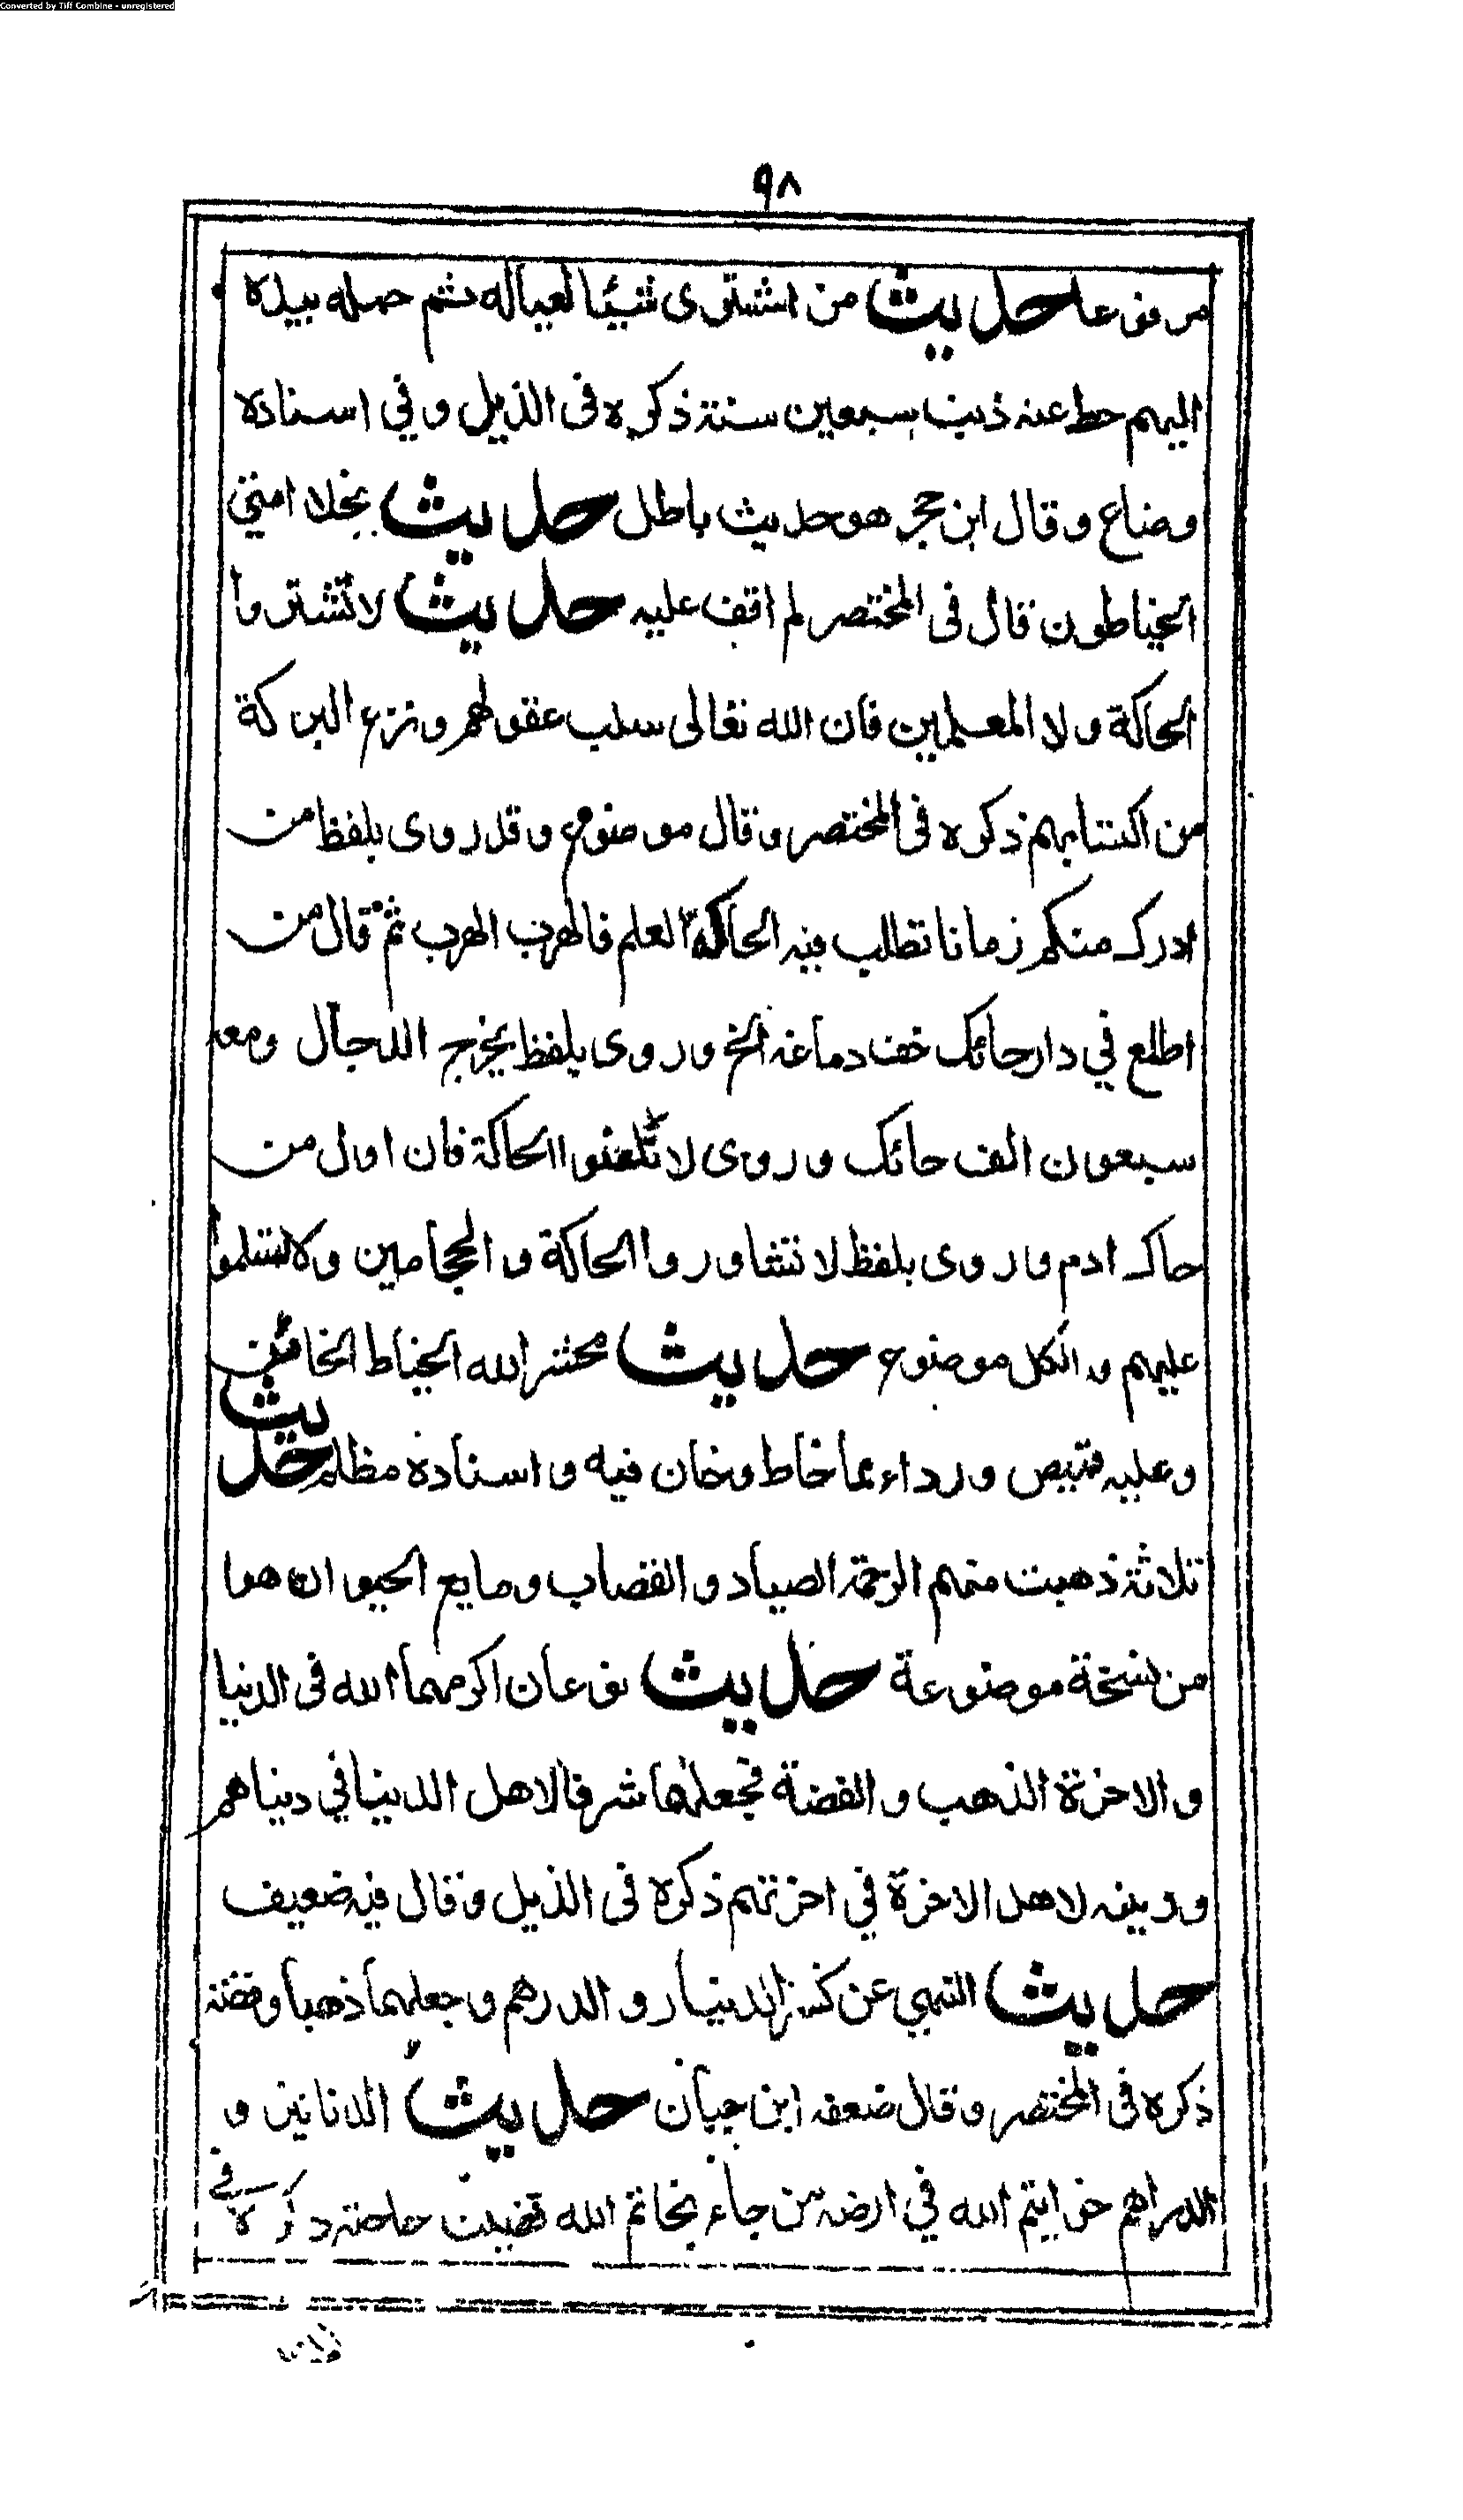 Converted by Tiff Combine - unregistered
٩٨
مرفوعا حديث من اشترى شيئا لعياله ثم حمله بيده
اليهم حط عنه ذنب سبعين سنة ذكره فى الذيل وفي اسناده
وضاع وقال ابن حجر هو حديث باطل حديث بخلاء امتي
الخياطون قال فى المختصر لم اقف عليه حديث لا تشتروا
الحاكة ولا المعلمين فان الله تعالى سلب عقولهم ونزع البركة
من اكتسابهم ذكره فى المختصر وقال موضوع وقد روى بلفظ من
ادرك منكم زمانا تطلب فيه الحاكة العلم فالهرب الهرب ثم قال من
اطلع في دار حائك خف دماغه الخ وروى بلفظ يخرج الدجال ومعه
سبعون الف حائك وروى لا تلعنوا الحاكة فان اول من
حاك ادم وروى بلفظ لا تشاوروا الحاكة والحجامين ولا تسلموا
عليهم والكل موضوع حديث يحشر الله الخياط الخائن
وعليه قميص ورداء مما خاط وخان فيه واسناده مظلم حديث
ثلاثة ذهبت منهم الرحمة الصياد والقصاب وبايع الحيوان هوا
من نسخة موضوعة حديث نوعان اكرمهما الله فى الدنيا
والاخرة الذهب والفضة فجعلها شرفا لاهل الدنيا في دنياهم
وزينه لاهل الاخرة في اخرتهم ذكره فى الذيل وقال فيه ضعيف
حديث النهي عن كسر الدينار والدرهم وجعلهما ذهبا وفضة
ذكره فى المختصر وقال ضعفه ابن حبان حديث الدنانير و
الدراهم خواتيم الله في ارضه من جاء بخاتم الله قضيت حاجته ذكره في